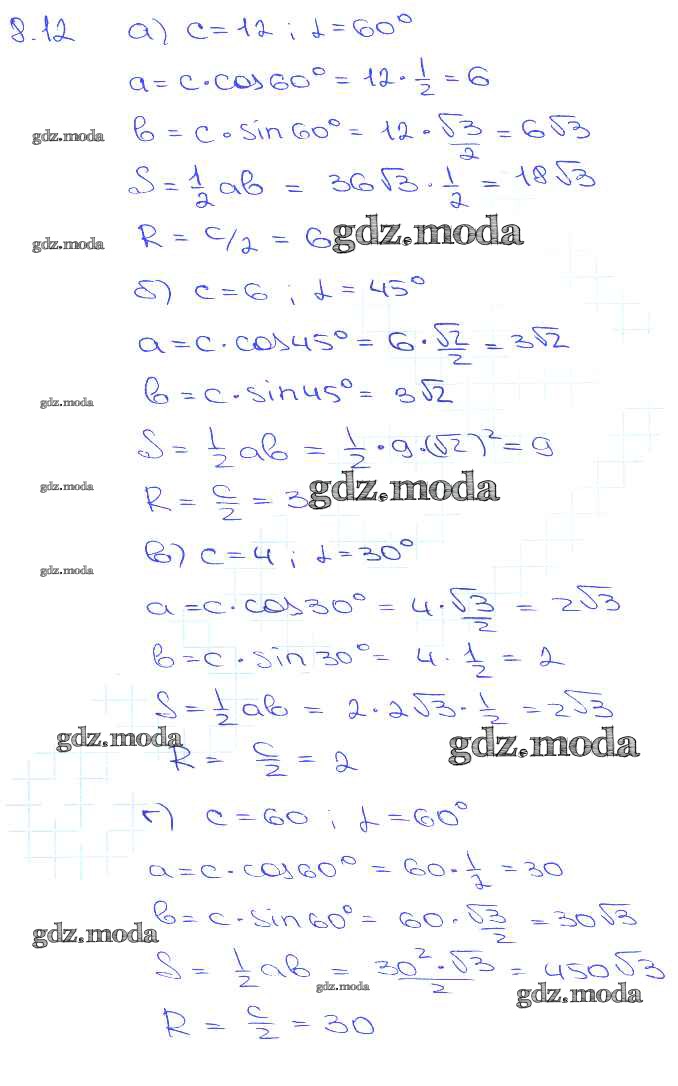 8.12 а) c=12 ; α=60°
a=c·cos60°=12·1/2=6
gdz.moda
b=c·sin60°=12·√3/2=6√3
S=1/2ab=36√3·1/2=18√3
gdz.moda
R=c/2=6
gdz.moda
б) c=6 ; α=45°
a=c·cos45°=6·√2/2=3√2
gdz.moda
b=c·sin45°=3√2
S=1/2ab=1/2·9·(√2)²=9
gdz.moda
R=c/2=3
gdz.moda
в) c=4 ; α=30°
gdz.moda
a=c·cos30°=4·√3/2=2√3
b=c·sin30°=4·1/2=2
S=1/2ab=2·2√3·1/2=2√3
gdz.moda
R=c/2=2
gdz.moda
г) c=60 ; α=60°
a=c·cos60°=60·1/2=30
b=c·sin60°=60·√3/2=30√3
gdz.moda
S=1/2ab=30²·√3/2=450√3
gdz.moda
gdz.moda
R=c/2=30